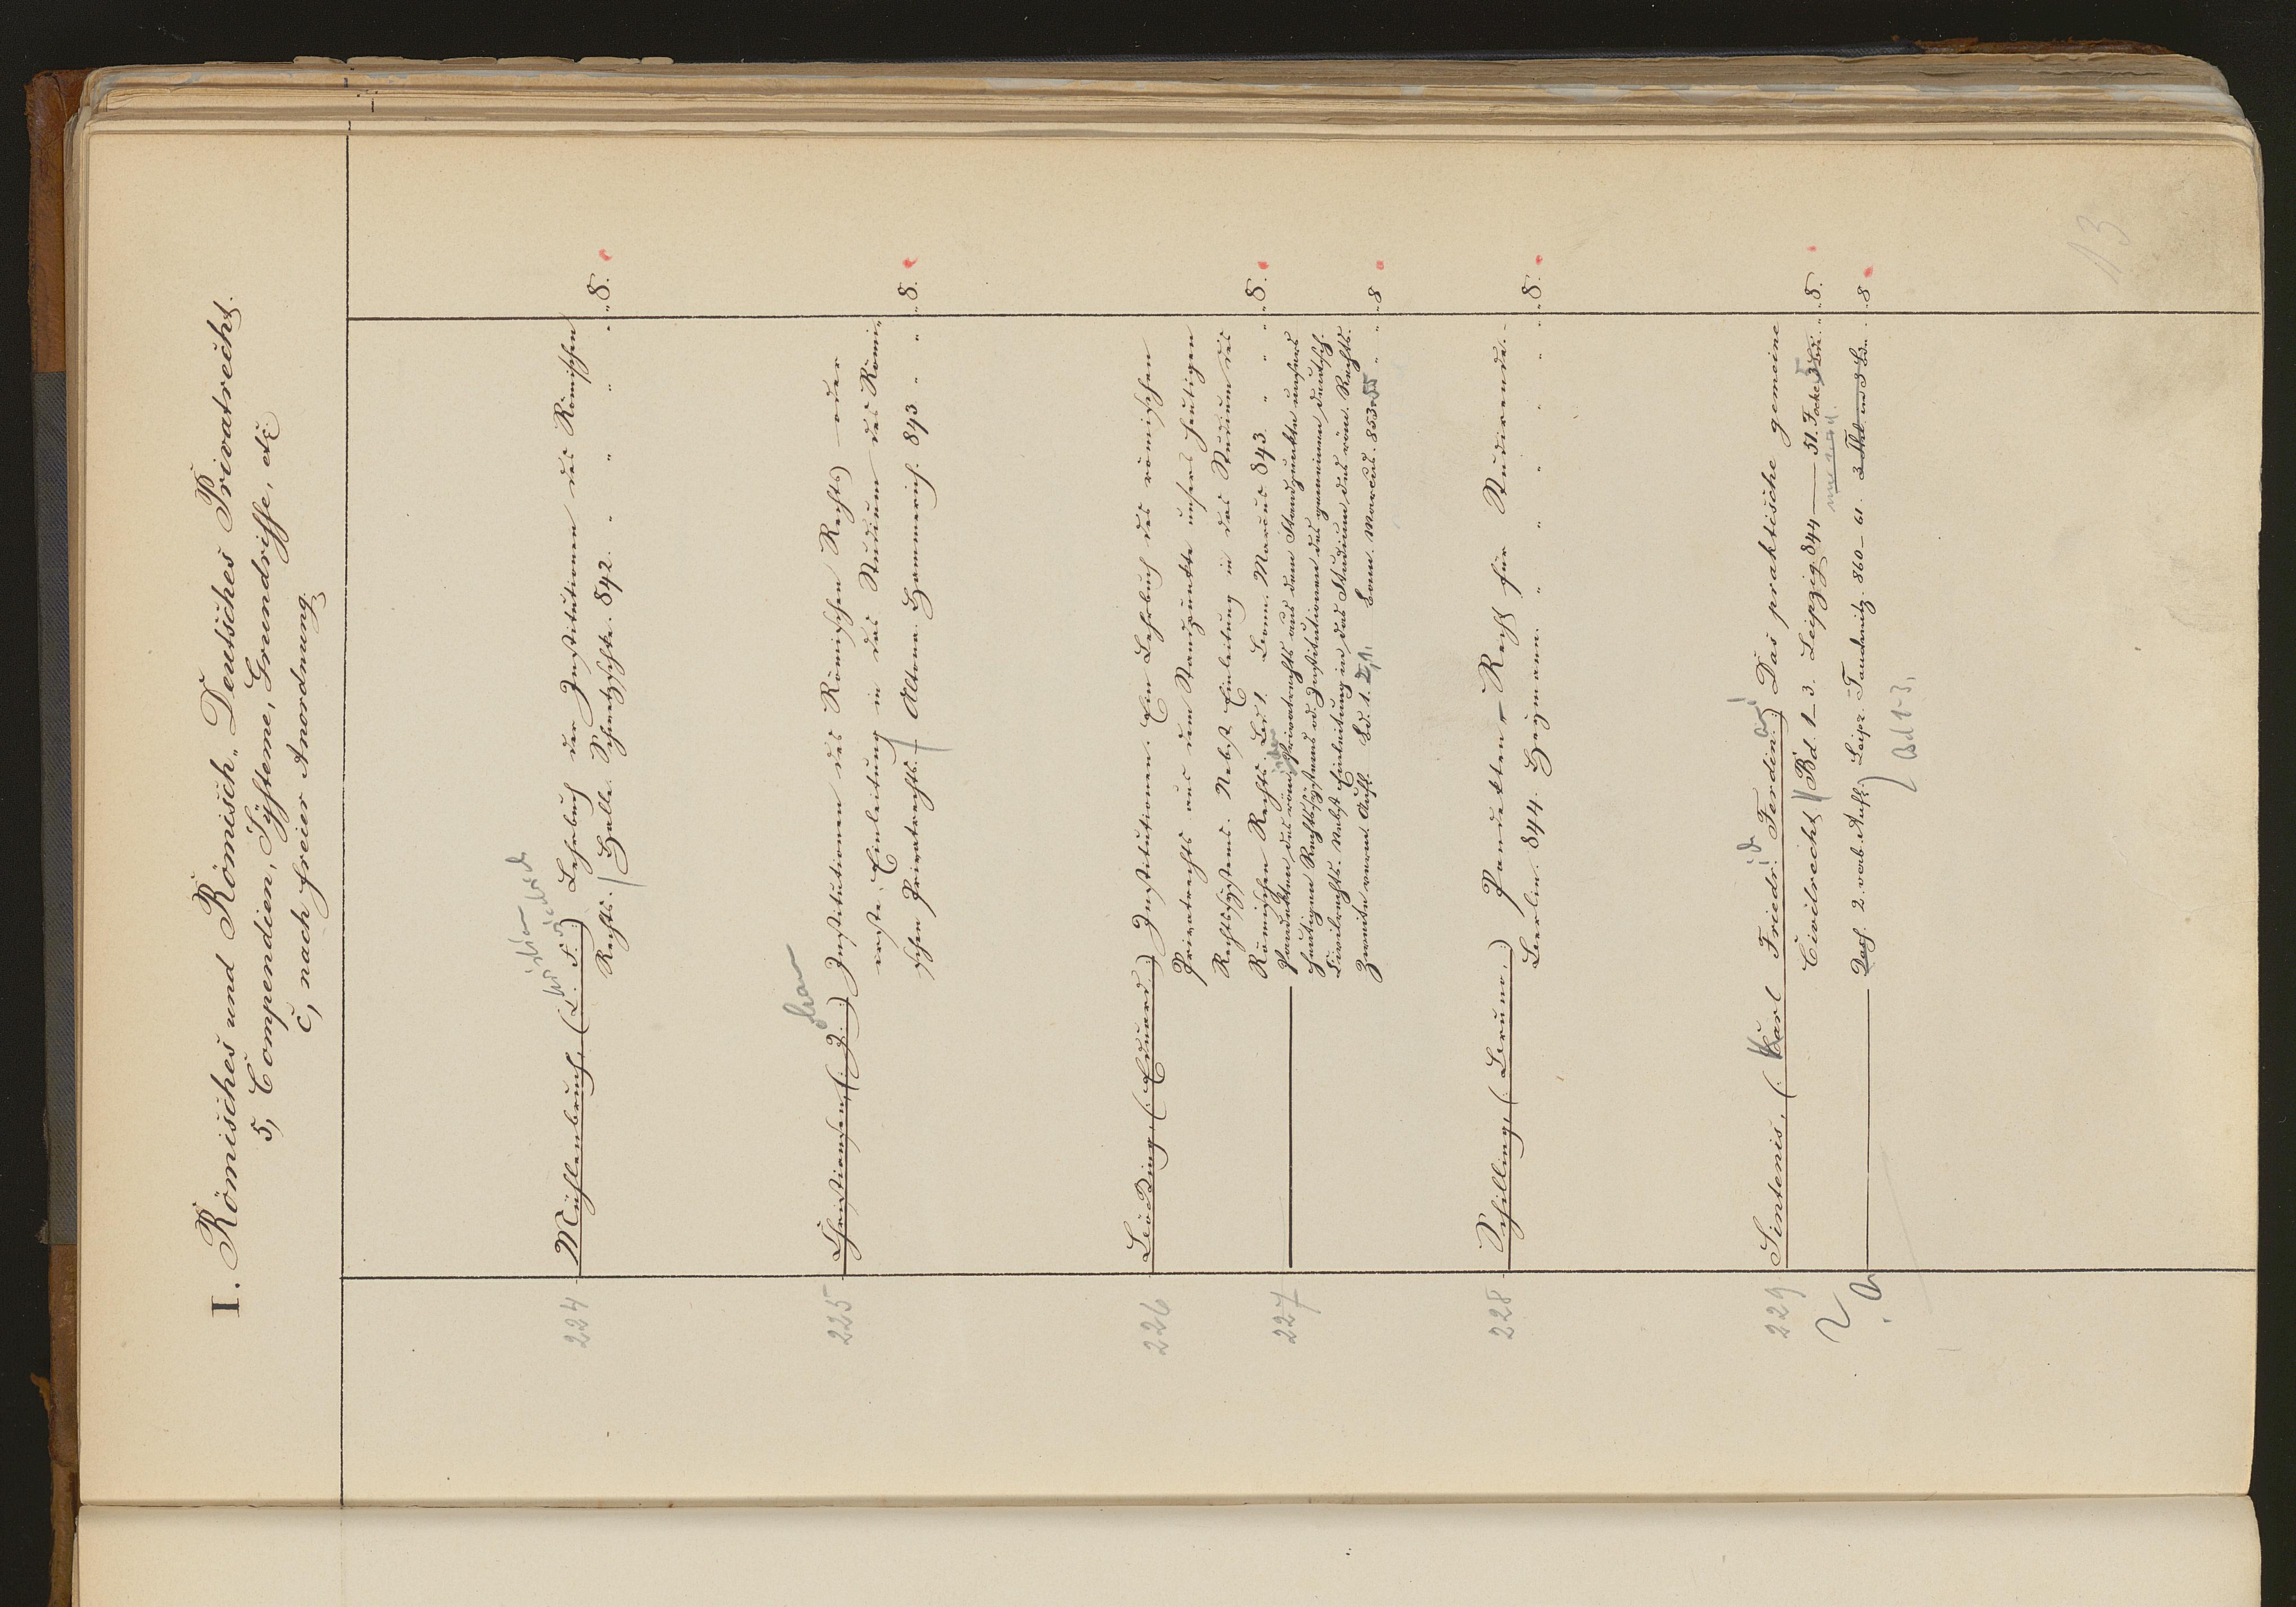 I. Römisches und Römisch-Deutsches Privatrecht.
5, Compendien, Systeme, Grundrisse, etc.
c, nach freier Anordnung.
13
224 Mühlenbruch, (C. F.) Lehrbuch der Institutionen des Römischen
Christian Friedrich
Rechts. Halle. Schwetschke. 842. " " " " 8.
225 Christiansen, (: J. :) Institutionen des Römischen Rechts oder
Johann
erste Einleitung in das Studium des Römi-
schen Privatrechts. Altona. Hammerich. 843. " " 8.
226 Böcking, (: Eduard :) Institutionen. Ein Lehrbuch des römischen
Privatrechts aus dem Standpunkte unsers heutigen
Rechtssystems. Nebst Einleitung in das Studium des
Römischen Rechts. Bd 1. Bonn. Marcus 843. " " " 8.
227 Pandekten des röm. Privatrechts aus dem Standpunkte unseres
heutigen Rechtssystems od. Institutionen des gemeinen deutsch.
Civilrechts. Nebst Einleitung in das Studium des röm. Rechts.
Zweite verm. Aufl. Bd. 1. 2,1. Bonn. Marcus. 853-55 " " 8
228 Schilling, (: Bruno. :) Pandekten-Recht für Studirende.
Berlin. 844. Heymann. " " " " " 8.
229 Sintenis, (: Karl Friedr. Ferdin. :) Das praktische gemeine
Civilrecht. Bd. 1-3. Leipzig. 844 — 51. Focke 3 Bde. " 8.
Dass. 2. verb. Aufl. Leipz. Tauchnitz. 860-61. 3 Thl. in 3 Bdn. 8
Bd 1-3.